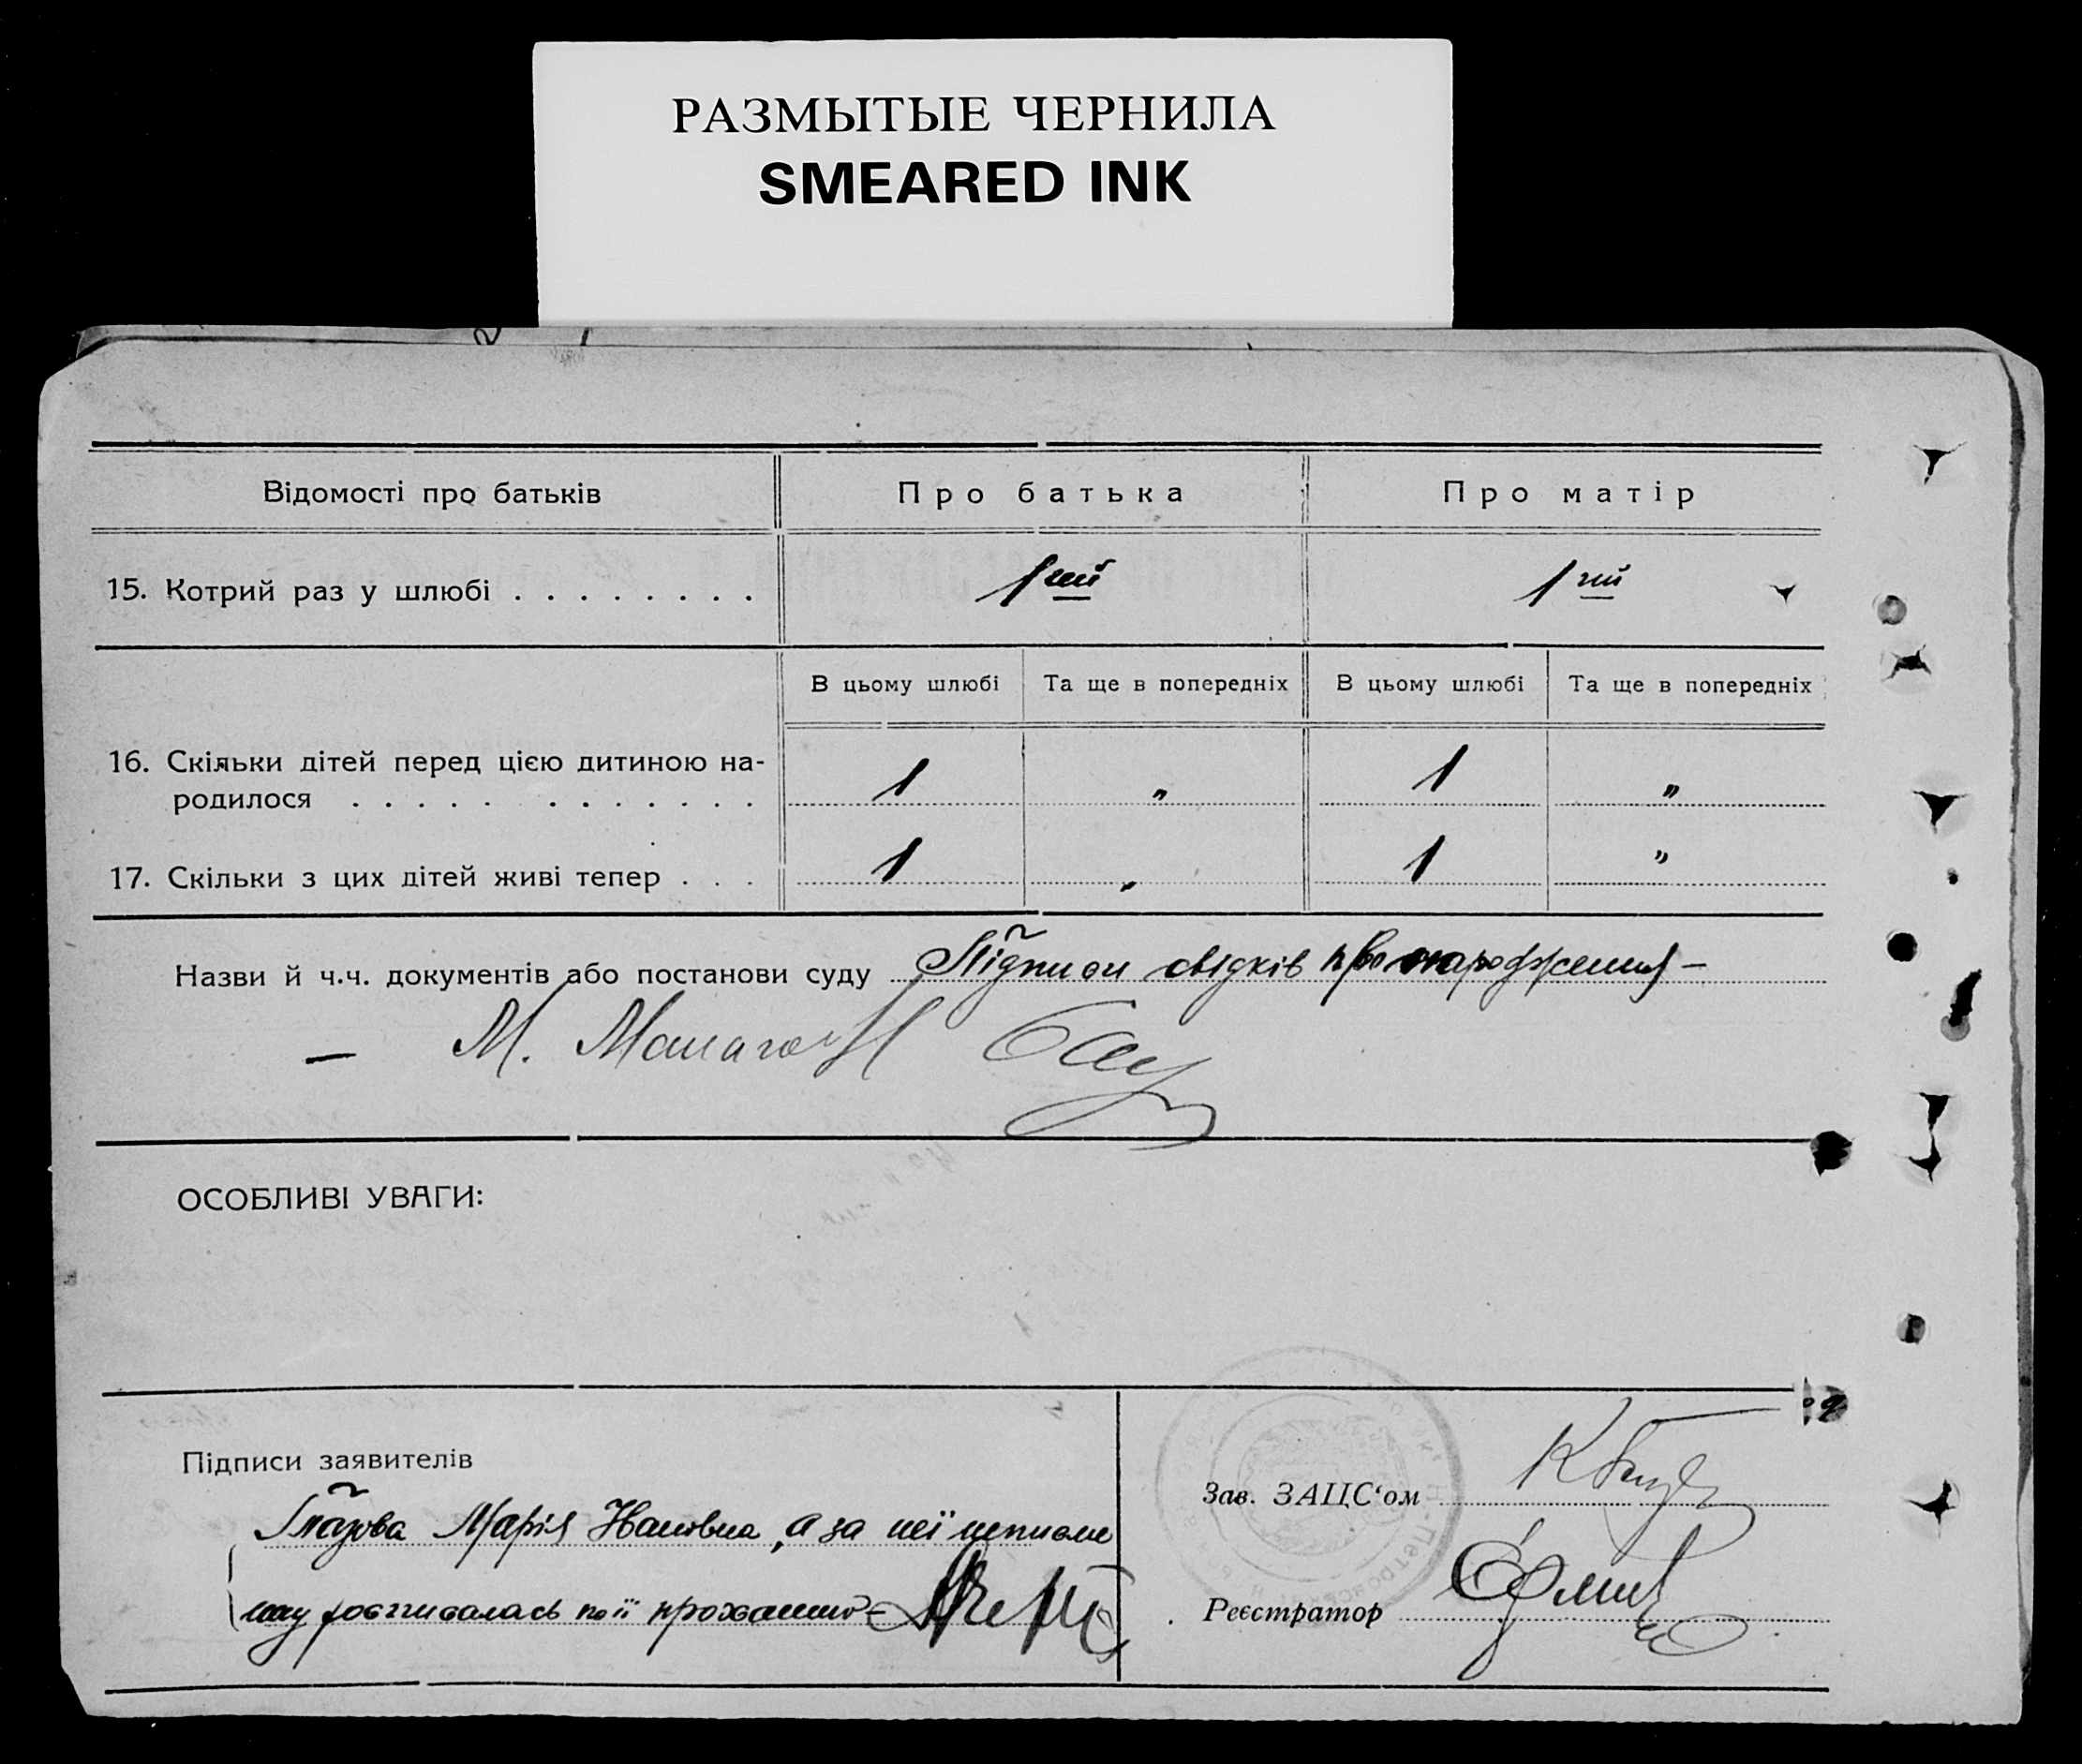 РАЗМЫТЫЕ ЧЕРНИЛА
SMEARED INK
Відомості про батьків
Про батька
Про матір
15. Котрий раз у шлюбі . . . . . . . .
1ший
1ий
В цьому шлюбі
Та ще в попередніх
В цьому шлюбі
Та ще в попередніх
16. Скільки дітей перед цією дитиною на-
родилося . . . . . . . . . . . .
1
"
1
"
17. Скільки з цих дітей живі тепер . . .
1
"
1
"
Назви й ч.ч. документів або постанови суду Підписи свідків про народження –
– М.
ОСОБЛИВІ УВАГИ:
Підписи заявителів
Марія Іванівна, а за неї
розписалась по її проханню –
Зав. ЗАЦС‘ом
Реєстратор